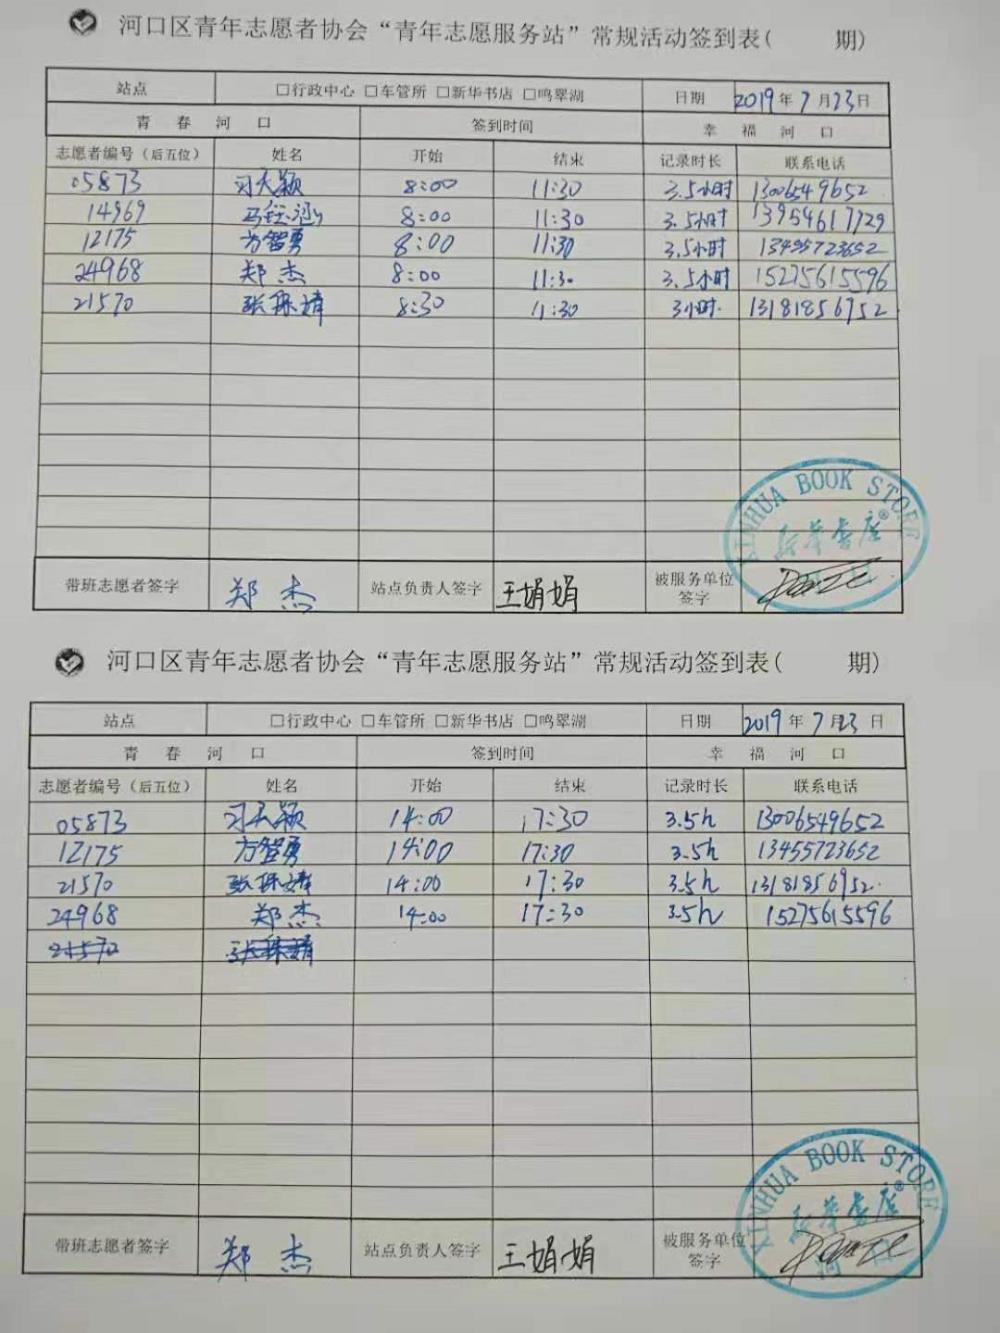 河口区青年志愿者协会“青年志愿服务站”常规活动签到表( 期)
站点 □行政中心 □车管所 □新华书店 □鸣翠湖 日期 2019年7月23日
青 春 河 口 签到时间 幸 福 河 口
志愿者编号(后五位) 姓名 开始 结束 记录时长 联系电话
05873 习天颖 8:00 11:30 3.5小时 13006549652
14969 8:00 11:30 3.5小时 13954617729
12175 方智勇 8:00 11:30 3.5小时 13455723652
24968 郑杰 8:00 11:30 3.5小时 15275615596
21570 8:30 11:30 3小时 13181856952
XINHUA BOOK STORE
新华书店
带班志愿者签字 郑杰 站点负责人签字 王娟娟 被服务单位签字
河口区青年志愿者协会“青年志愿服务站”常规活动签到表( 期)
站点 □行政中心 □车管所 □新华书店 □鸣翠湖 日期 2019年7月23日
青 春 河 口 签到时间 幸 福 河 口
志愿者编号(后五位) 姓名 开始 结束 记录时长 联系电话
05873 习天颖 14:00 17:30 3.5h 13006549652
12175 方智勇 14:00 17:30 3.5h 13455723652
21570 14:00 17:30 3.5h 13181856952
24968 郑杰 14:00 17:30 3.5h 15275615596
21570
XINHUA BOOK STORE
新华书店
带班志愿者签字 郑杰 站点负责人签字 王娟娟 被服务单位签字